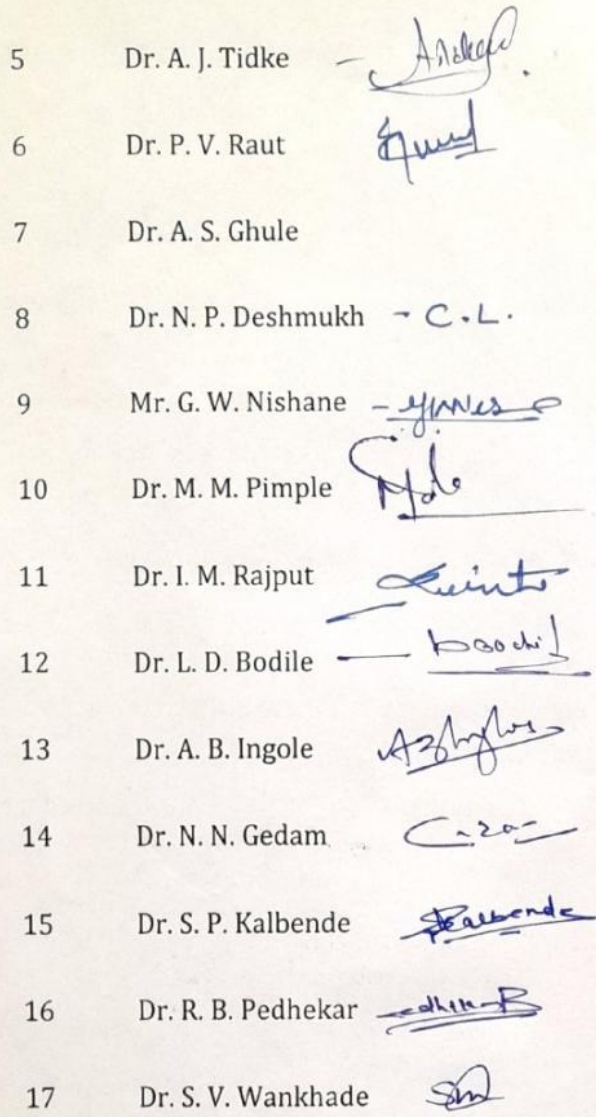 5 Dr. A. J. Tidke -
6 Dr. P. V. Raut
7 Dr. A. S. Ghule
8 Dr. N. P. Deshmukh - C.L.
9 Mr. G. W. Nishane -
10 Dr. M. M. Pimple
11 Dr. I. M. Rajput
12 Dr. L. D. Bodile -
13 Dr. A. B. Ingole
14 Dr. N. N. Gedam
15 Dr. S. P. Kalbende Kalbende
16 Dr. R. B. Pedhekar
17 Dr. S. V. Wankhade